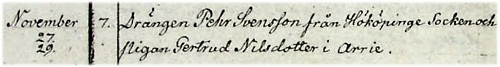 November 7. Drängen Pehr Svensson från Hököpinge Socken och
27. Pigan Gertrud Nilsdotter i Arrie.
29.